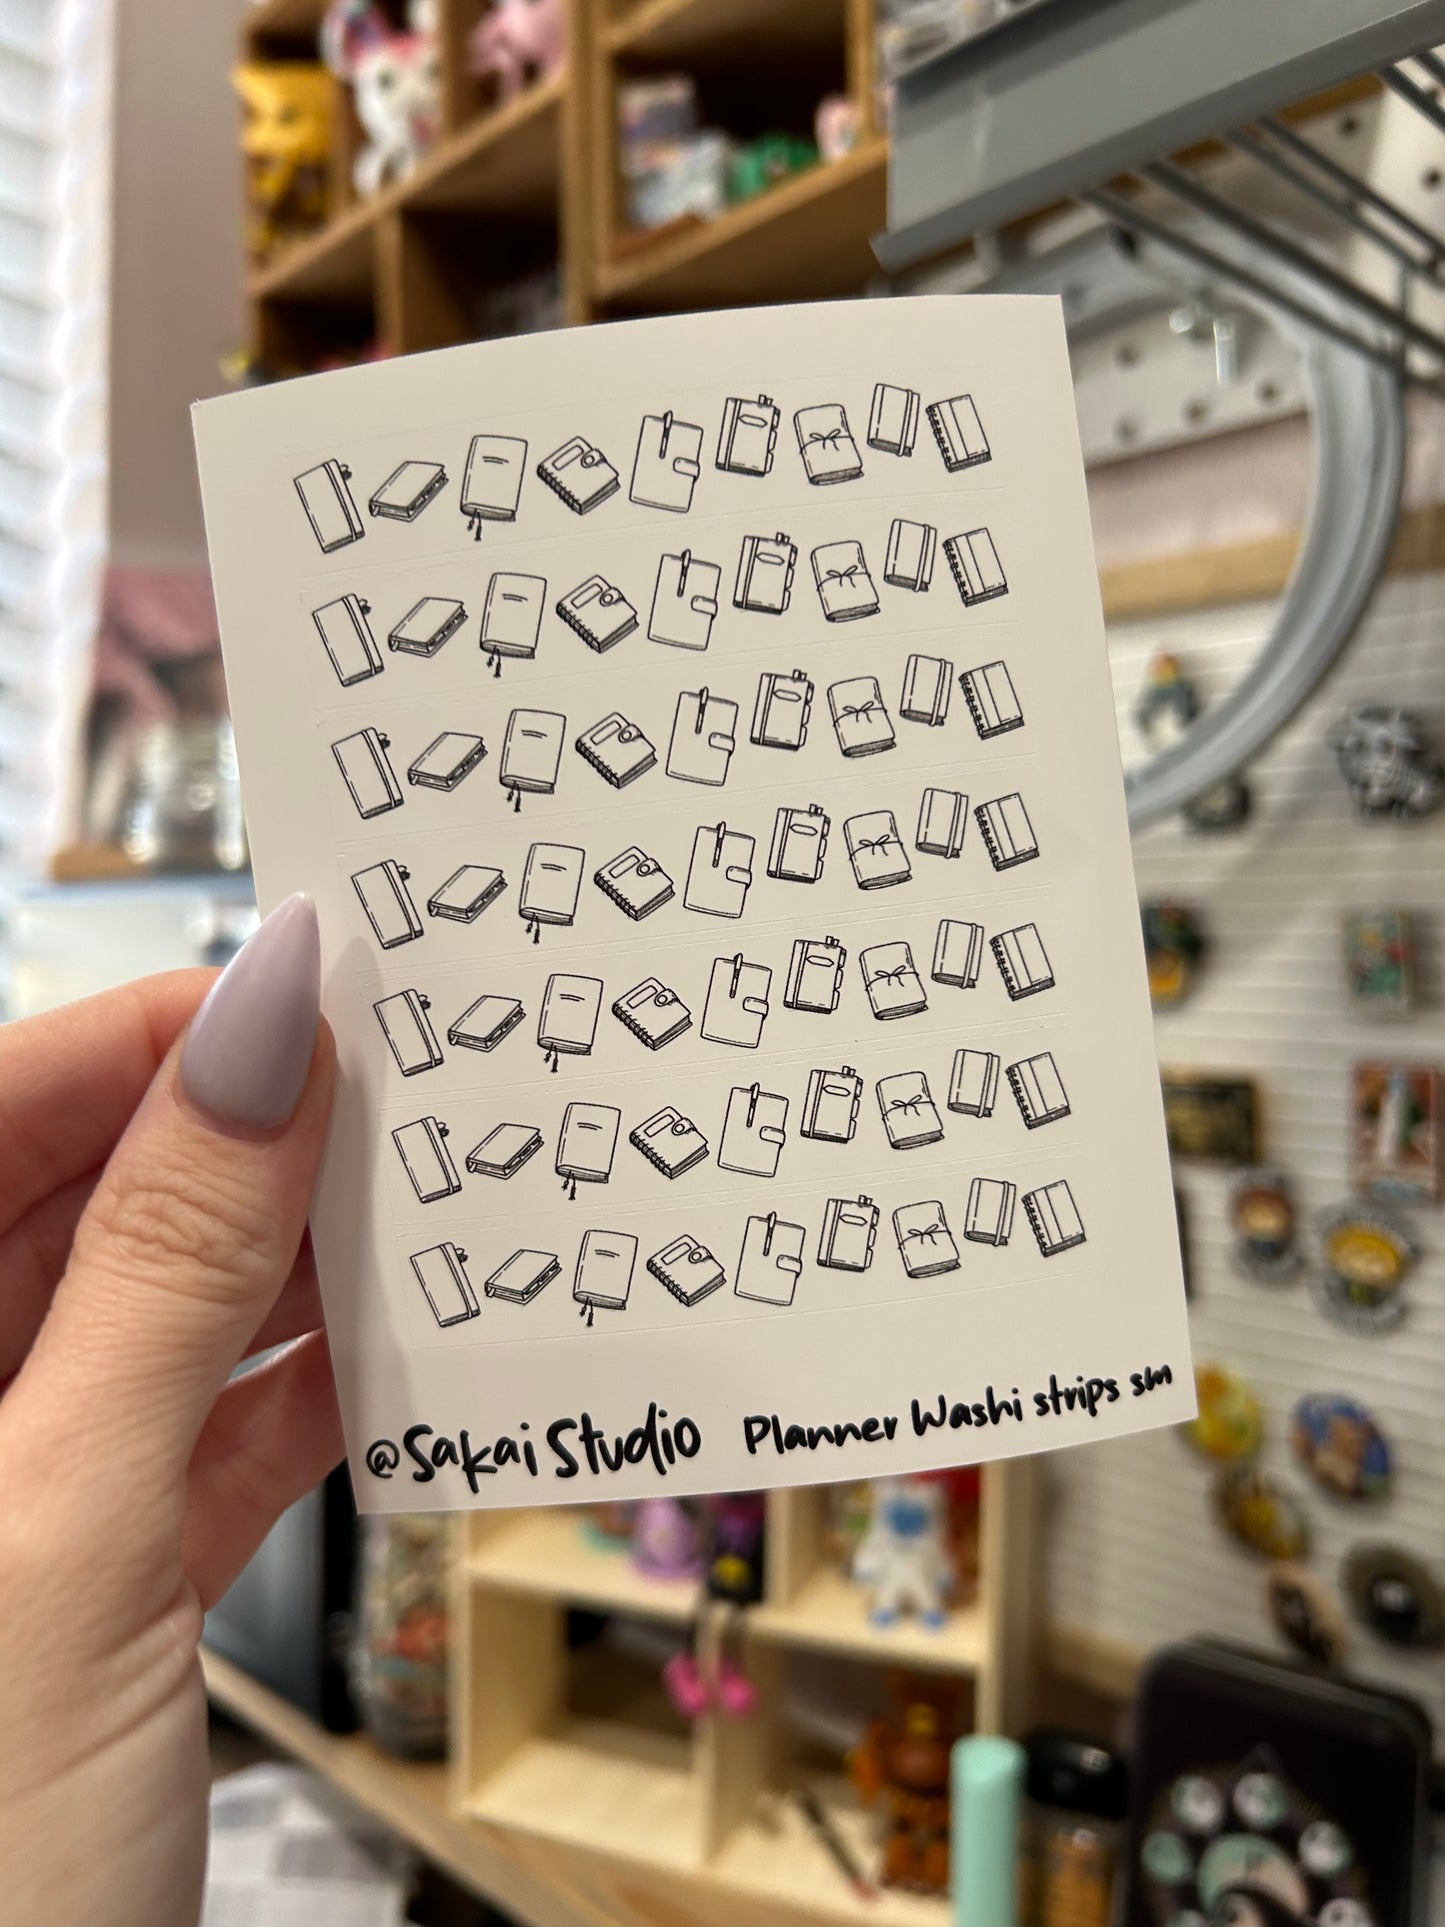 @Sakai Studio Planner Washi strips sm